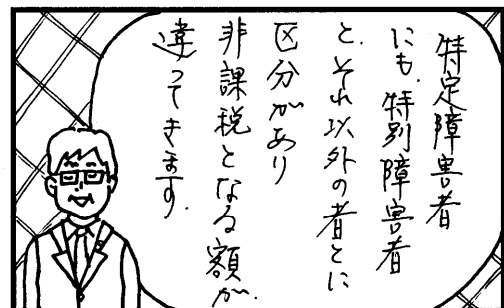 特定障害者
にも、特別障害者
と、それ以外の者とに
区分があり
非課税となる額が、
違ってきます。